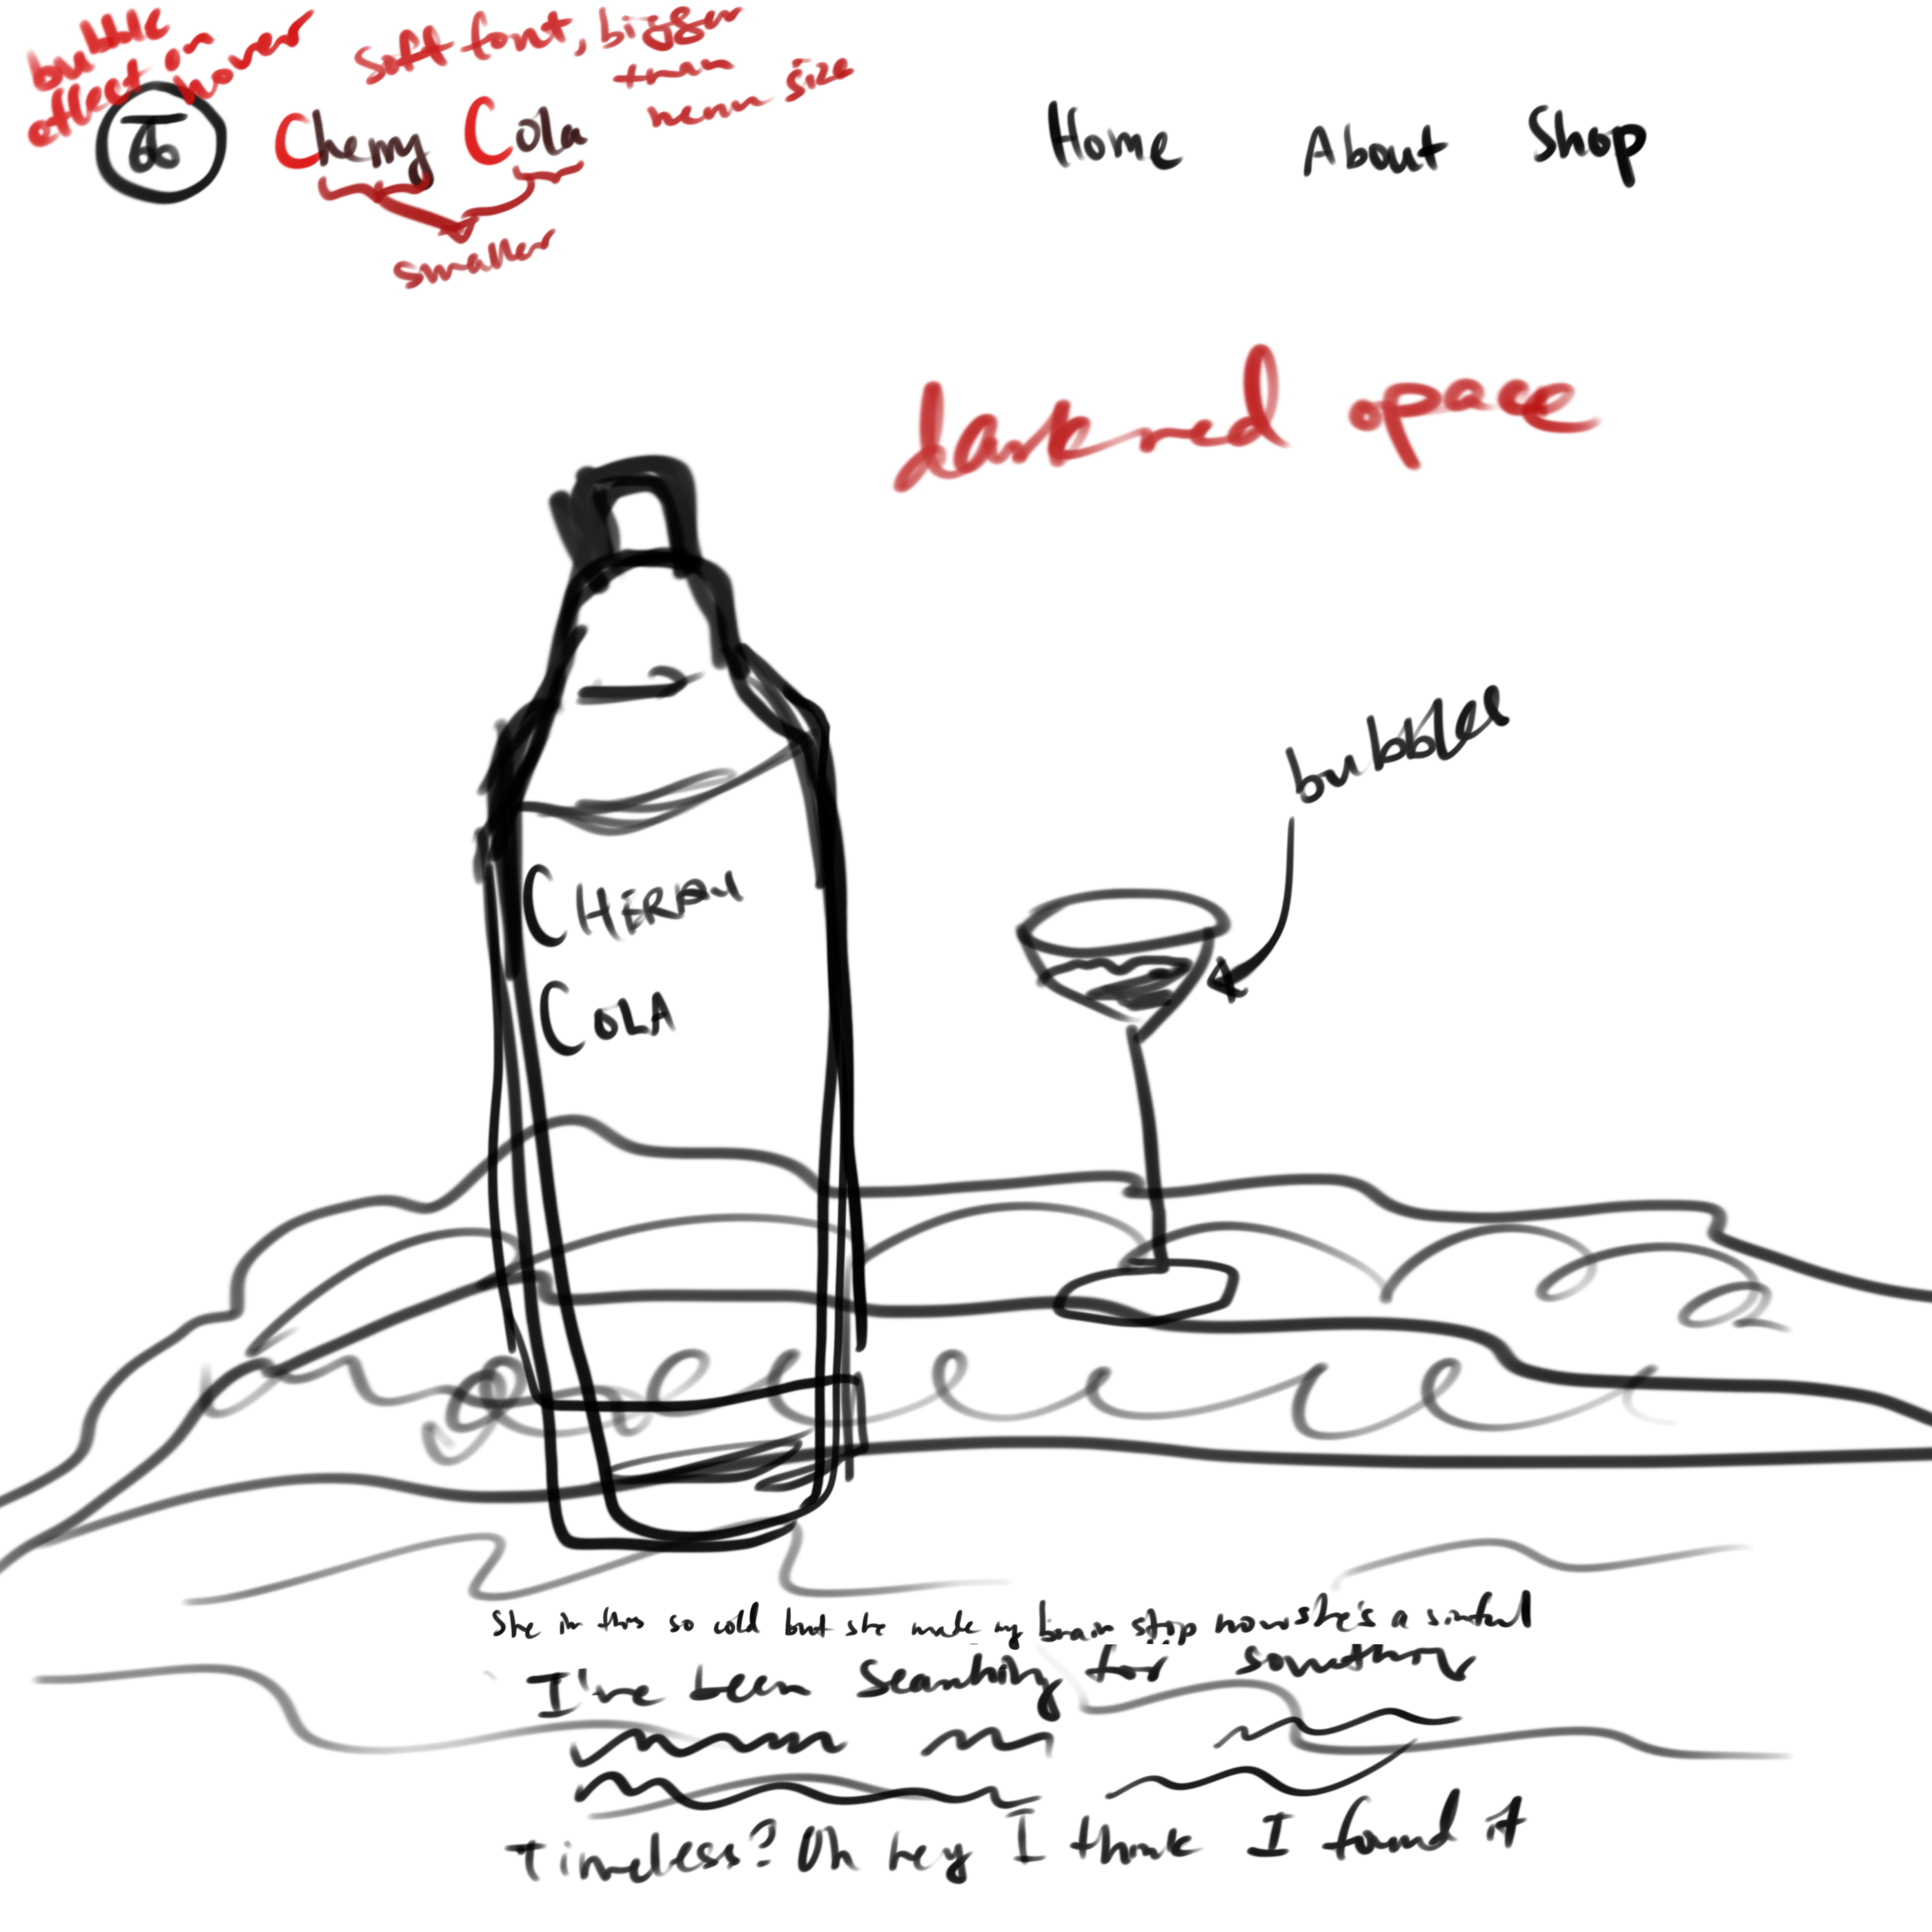 bubble
effect on
hover
soft font, bigger
than
menu size
Cherry Cola
smaller
Home About Shop
dark red opace
bubbles
CHERRY
COLA
She so cold but she made my brain stop now she's a sinful
I've been searching for something
timeless? Oh hey I think I found it